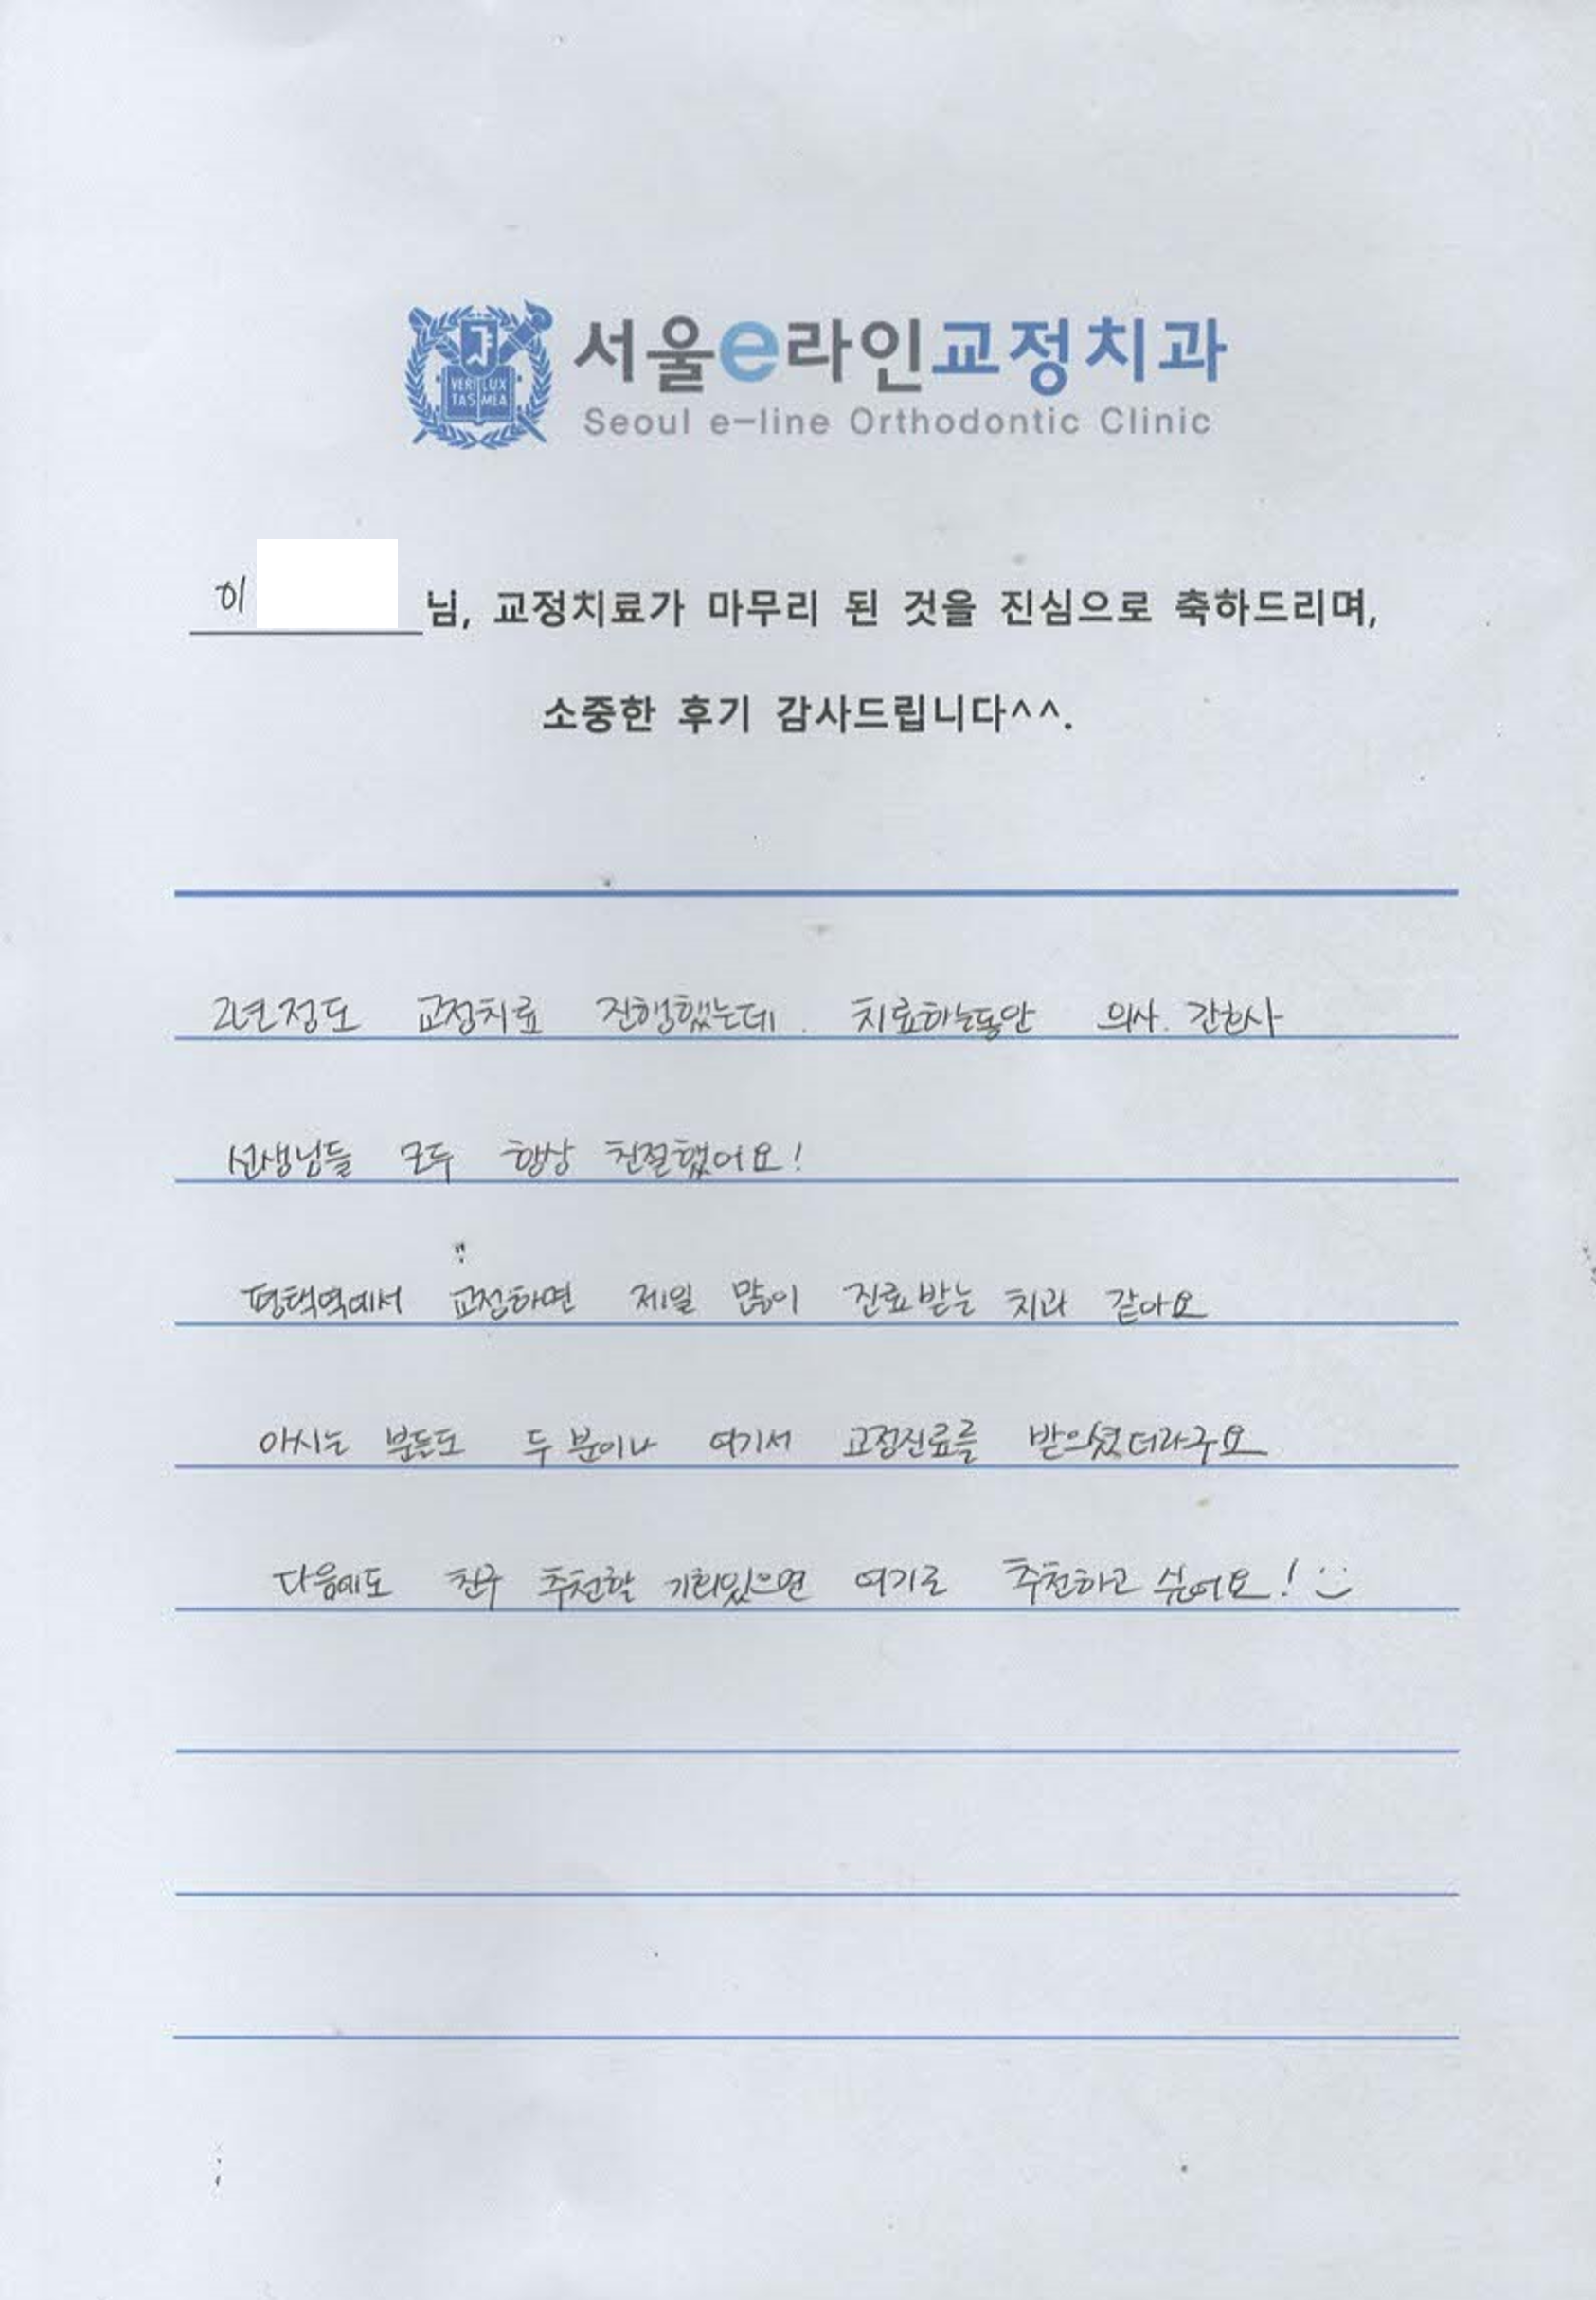 VERI LUX
TAS MEA
서울e라인교정치과
Seoul e-line Orthodontic Clinic
이 님, 교정치료가 마무리 된 것을 진심으로 축하드리며,
소중한 후기 감사드립니다^^.
2년정도 교정치료 진행했는데. 치료하는동안 의사. 간호사
선생님들 모두 항상 친절했어요!
평택역에서 교정하면 제일 많이 진료받는 치과 같아요
아시는 분들도 두 분이나 여기서 교정진료를 받으셨더라구요
다음에도 친구 추천할 기회있으면 여기로 추천하고 싶어요! :)